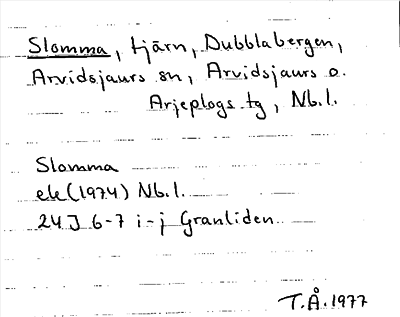 Slomma, tjärn, Dubblabergen,
Arvidsjaurs sn, Arvidsjaurs o.
Arjeplogs tg, Nb.l.
Slomma
ek (1974) Nb.l.
24J 6-7 i-j Granliden
T.Å. 1977